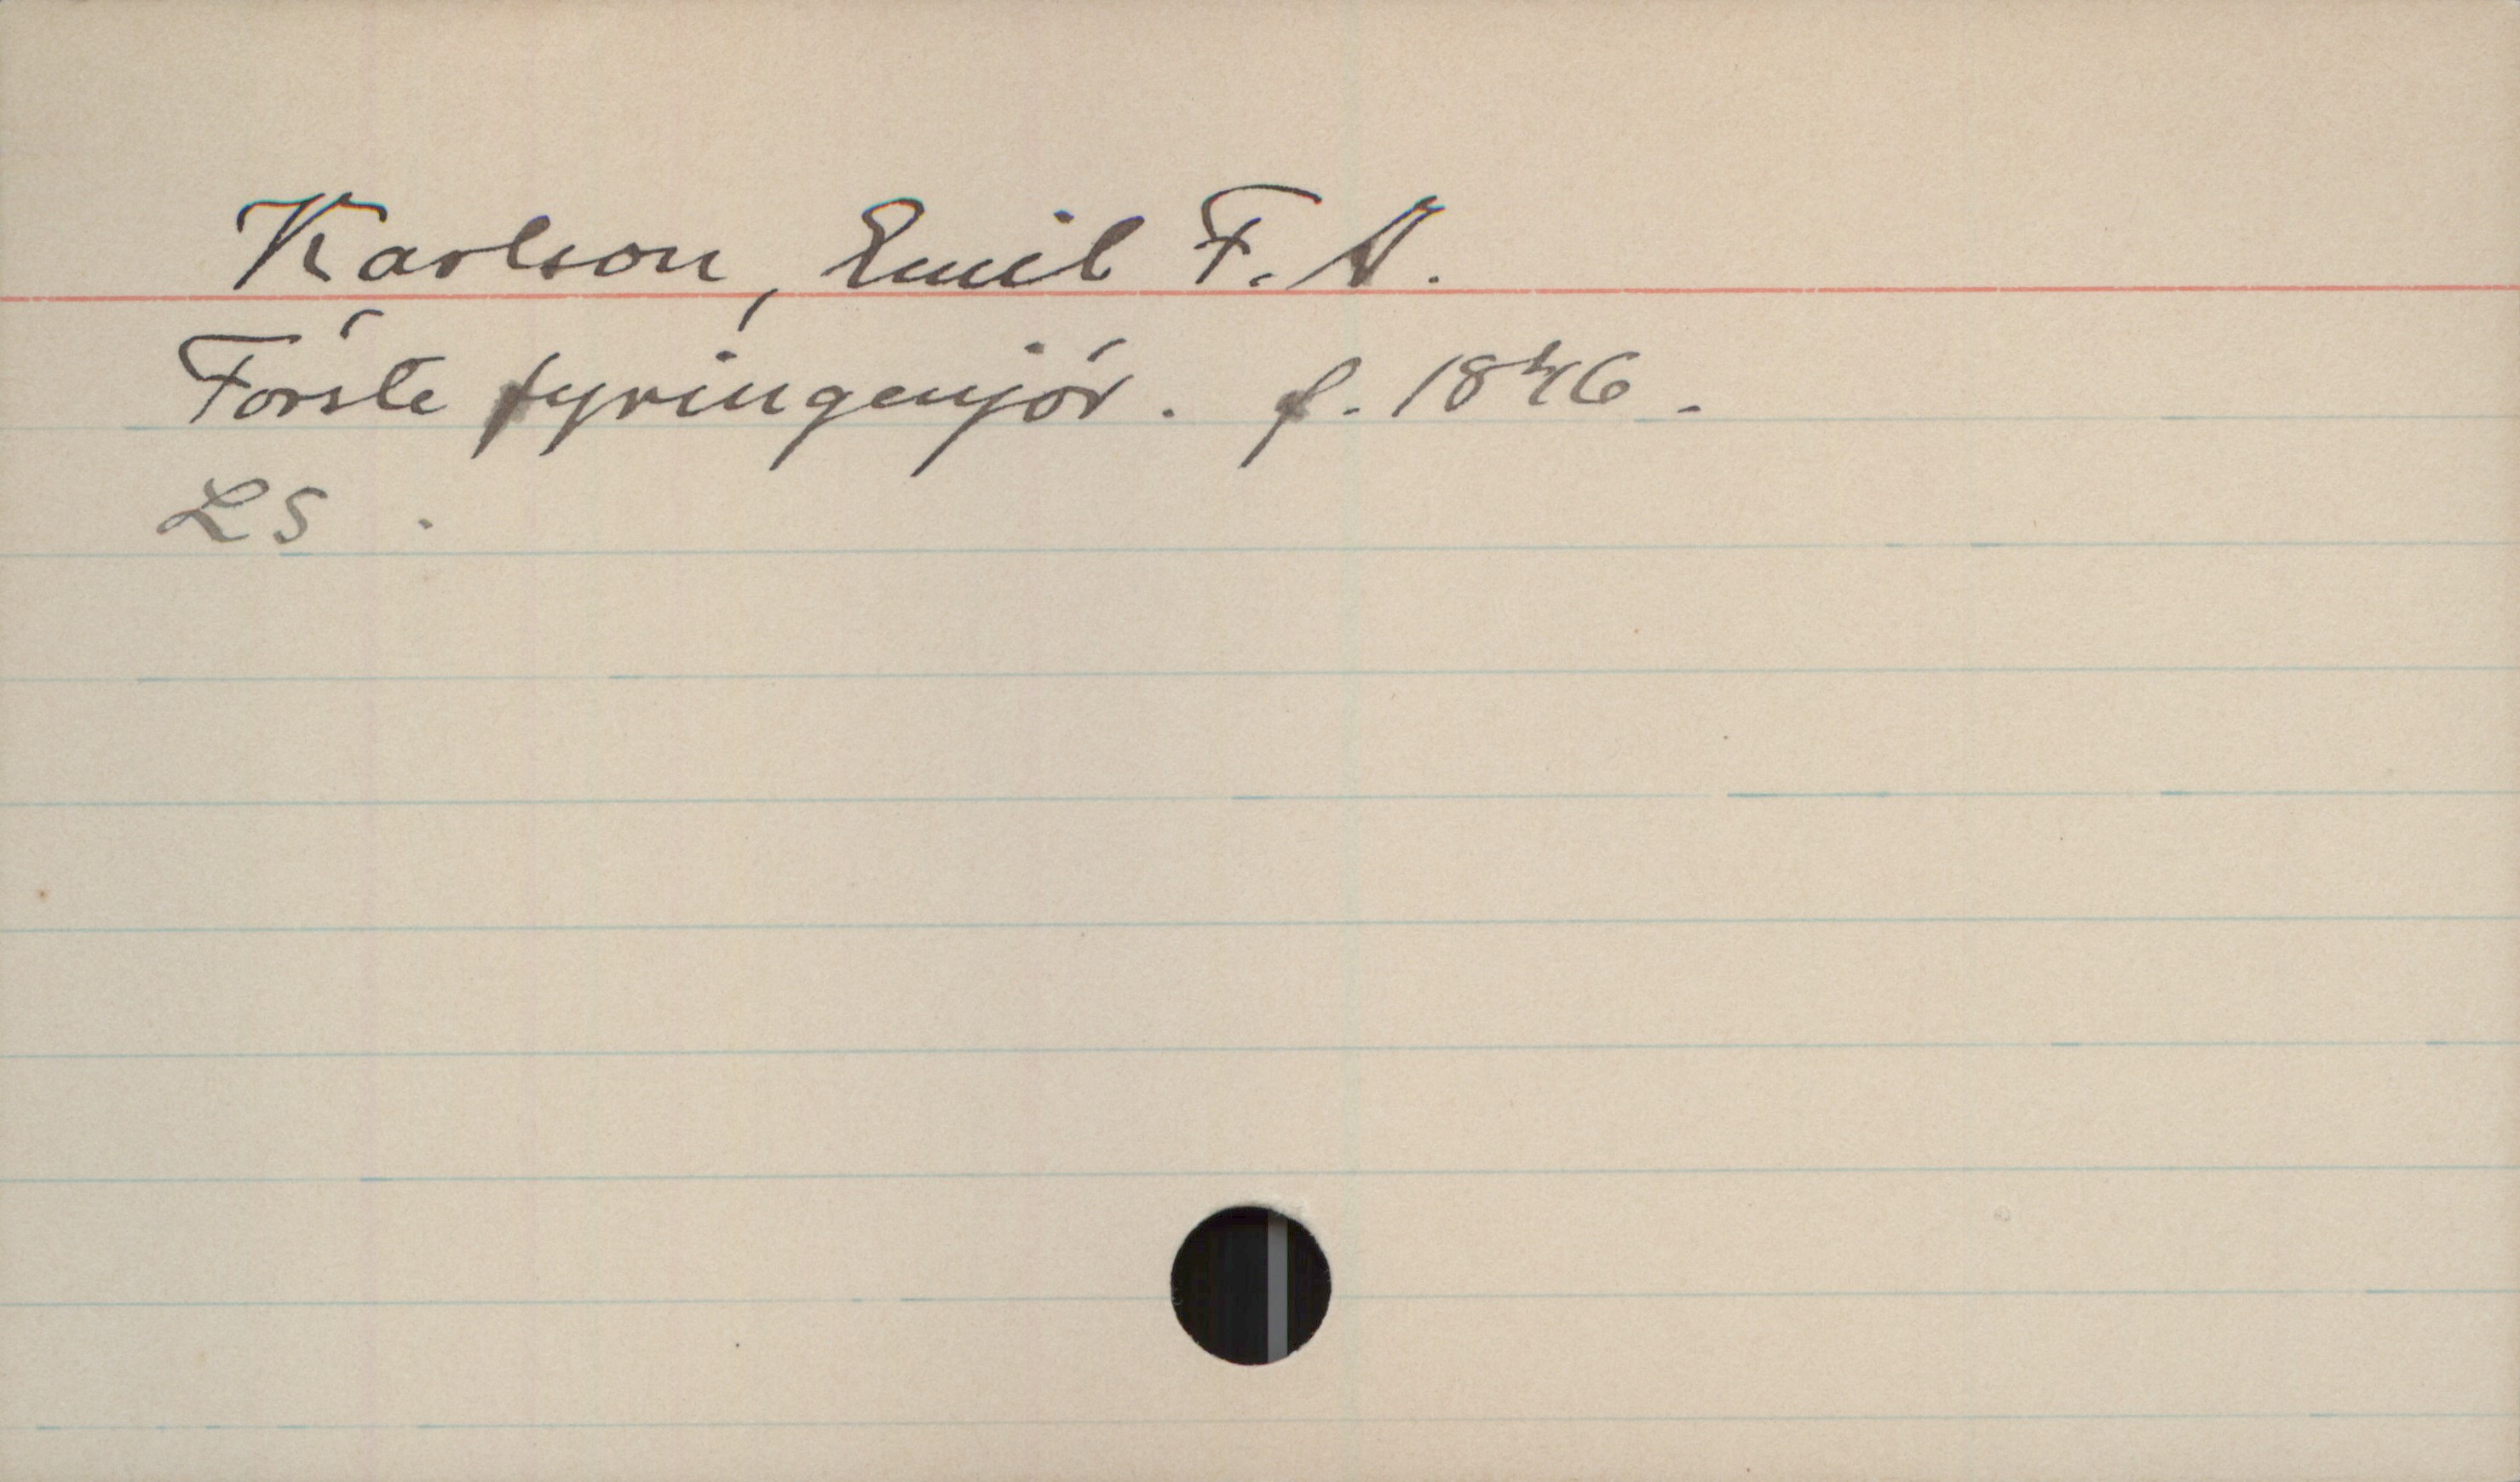 Karlson, Emil F. A.
Förste fyringenjör. f. 1846.
LS.